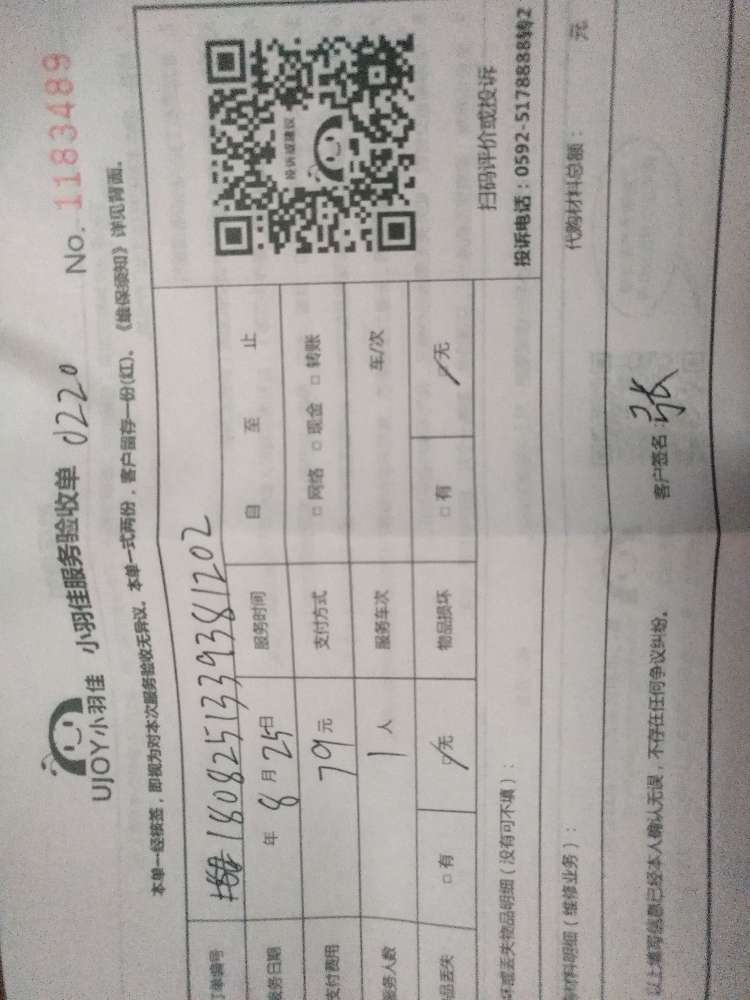 UJOY小羽佳 小羽佳服务验收单 0220 No. 1183489
本单一经核签，即视为对本次服务验收无异议。本单一式两份，客户留存一份(红)。《维保须知》详见背面。
订单编号 180825133939381202
服务日期 年 8 月 25 日 服务时间 自 至 止
支付费用 79 元 支付方式 □ 网络 □ 现金 □ 转账
服务人数 1 人 服务车次 车/次
品丢失 □ 有 □ 无 物品损坏 □ 有 □ 无
投诉或建议
扫码评价或投诉
投诉电话：0592-5178888转2
坏或丢失物品明细（没有可不填）：
材料明细（维修业务）： 代购材料总额： 元
以上填写信息已经本人确认无误，不存在任何争议纠纷。 客户签名：张